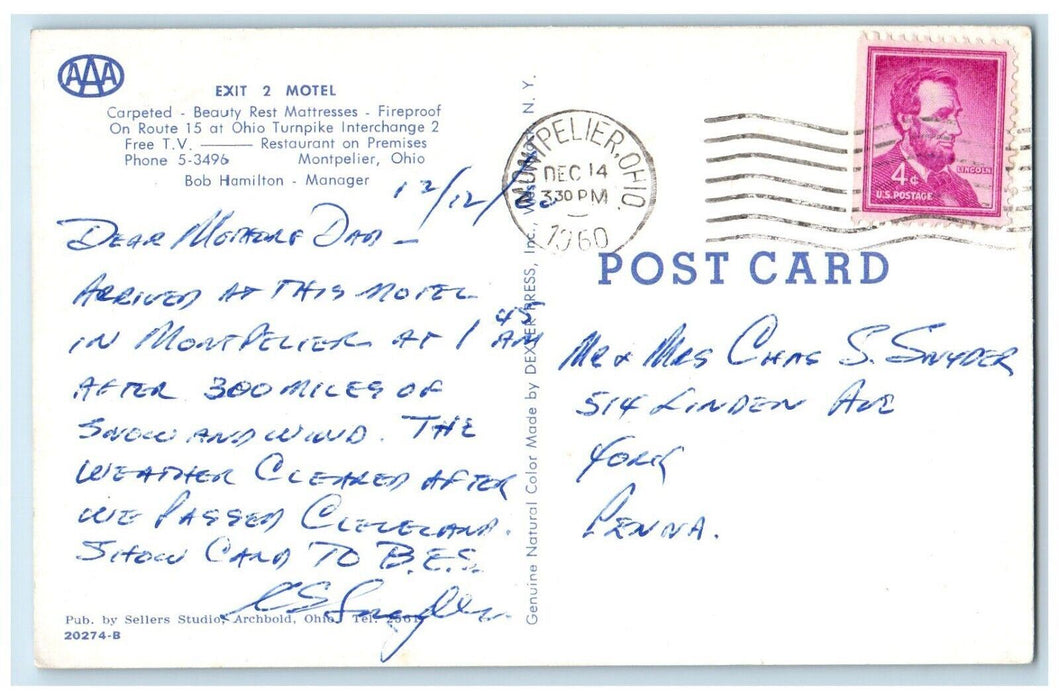 AAA
EXIT 2 MOTEL
Carpeted - Beauty Rest Mattresses - Fireproof
On Route 15 at Ohio Turnpike Interchange 2
Free T.V. —— Restaurant on Premises
Phone 5-3496 Montpelier, Ohio
Bob Hamilton - Manager
12/12/
DEAR MOTHER & DAD -
ARRIVED AT THIS MOTEL
IN MONTPELIER AT 1 45 AM
AFTER 300 MILES OF
SNOW AND WIND. THE
WEATHER CLEARED AFTER
WE PASSED CLEVELAND.
SHOW CARD TO B.E.S.
Pub. by Sellers Studio, Archbold, Ohio, Tel.
20274-B
Genuine Natural Color Made by DEXTER PRESS, Inc., N. Y.
MONTPELIER, OHIO.
DEC 14
3 30 PM
1960
4¢
LINCOLN
U.S. POSTAGE
POST CARD
MR & MRS CHAS S. SNYDER
514 LINDEN AVE
YORK
PENNA.